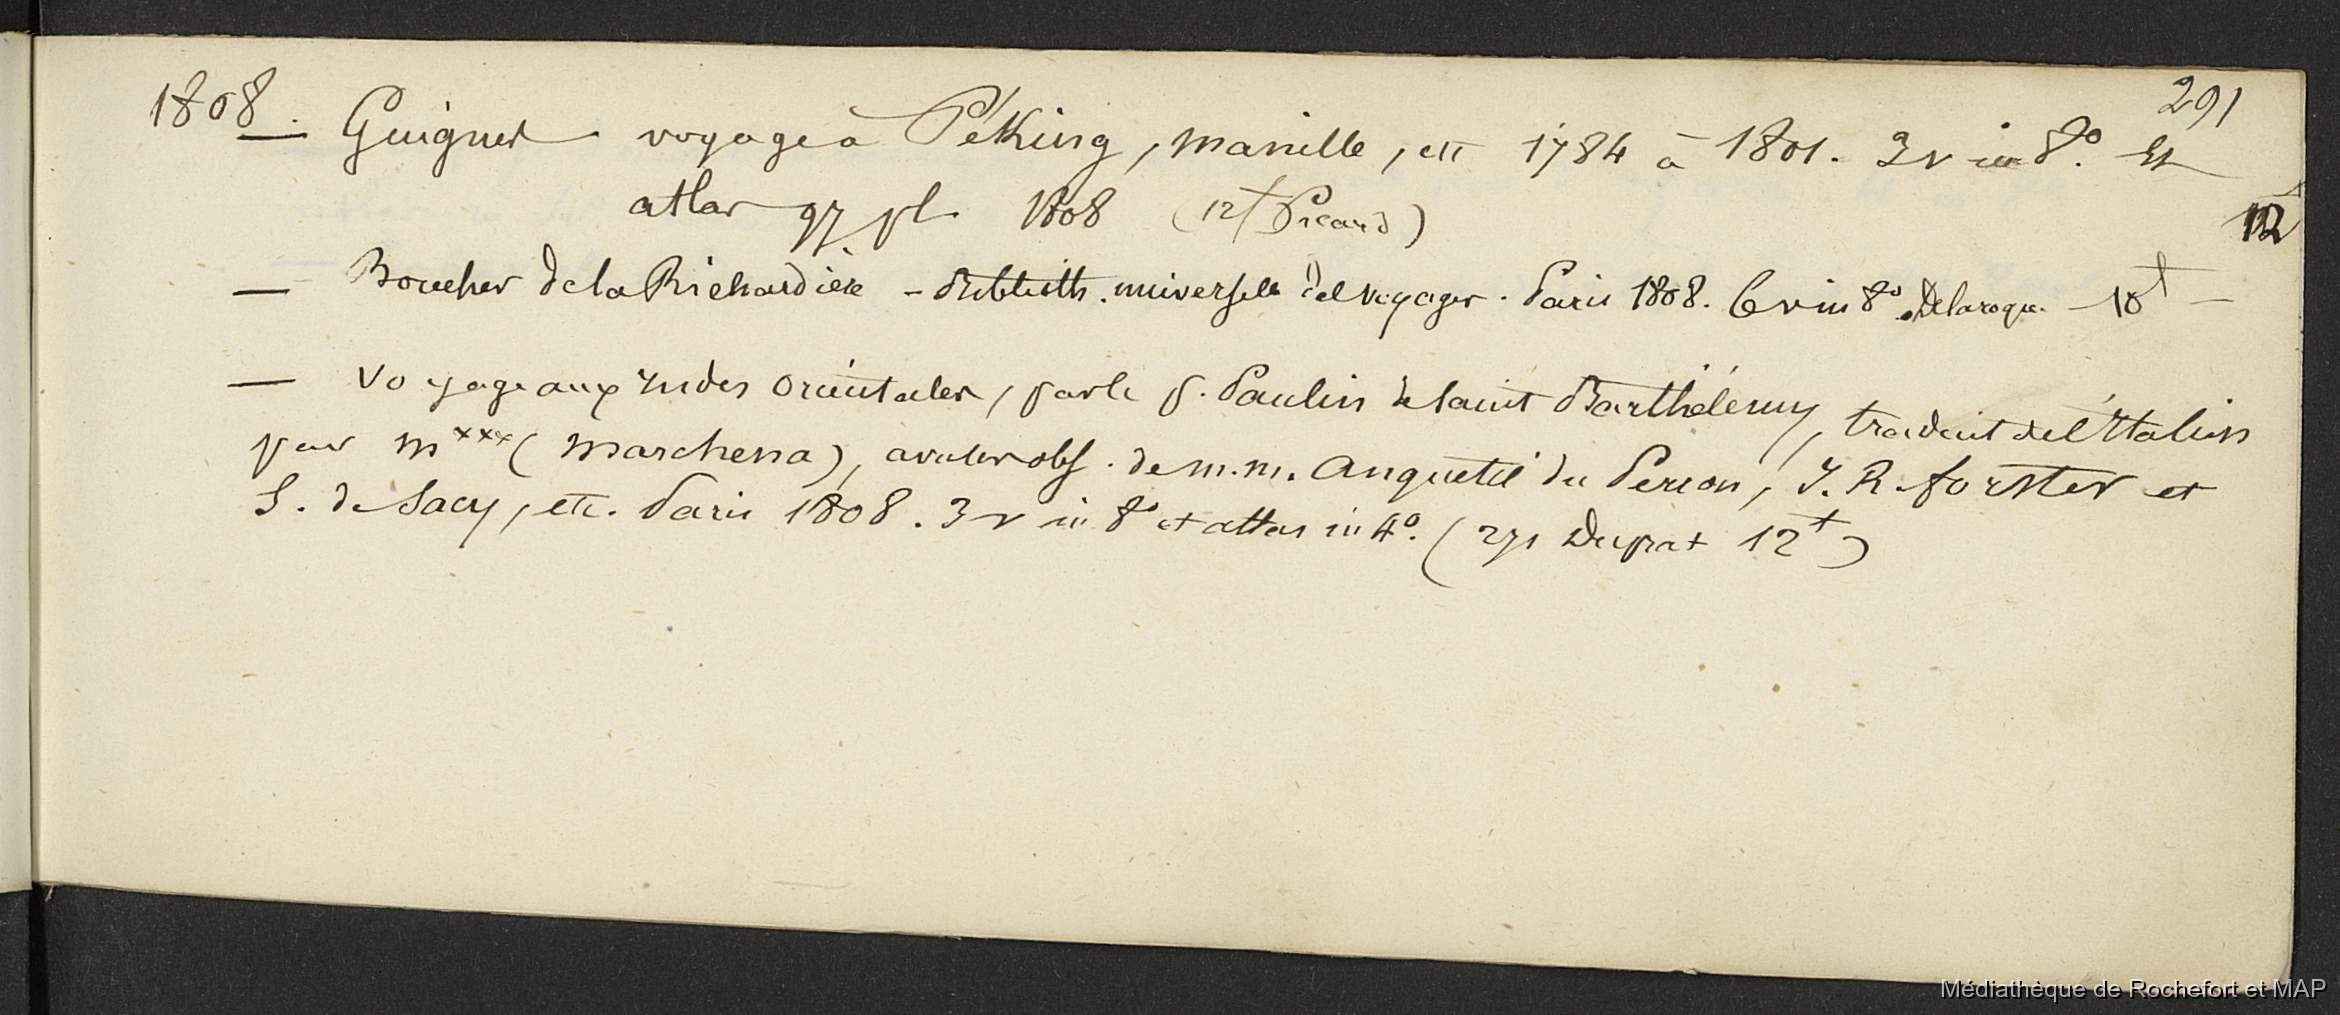 291
1808. — Guignes voyage à Péking, manille, etc 1784 à 1801. 3 v in 8°. et
atlas 97 pl. 1808 (12f Picard) 12
— Boucher de la Richardière – Biblioth. universelle des voyages. Paris 1808. 6 v in 8°. Delaroque — 10f —
— Voyage aux Indes orientales, par le p. Paulin de Saint Barthélemy, traduit de l'Italien
par M*** (Marchena), avec les obs. de m.m. Anquetil du Perron, J. R. forster et
S. de Sacy, etc. Paris 1808. 3 v in 8° et atlas in 4°. (271 Duprat 12f)
Médiathèque de Rochefort et MAP